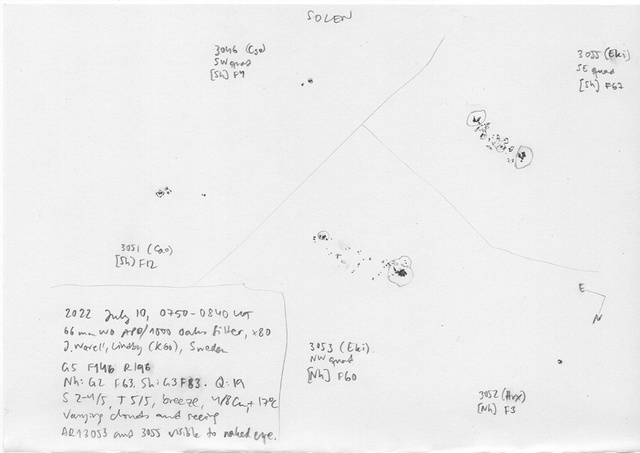 SOLEN
3046 (Cso)
SW quad
[Sh] F9
3055 (Eki)
SE quad
[Sh] F67
3051 (Cao)
[Sh] F12
E
N
2022 July 10, 0750-0840 UT
66 mm WO APO/1000 Oaks filter, x80
J. Warell, Lindby (K60), Sweden
G5 F146 R196
Nh: G2 F63, Sh: G3 F83. Q: 19
S 2-4/5, T 5/5, breeze, 4/8 Cu, +17°C
Varying clouds and seeing
AR13053 and 3055 visible to naked eye.
3053 (Eki)
NW quad
[Nh] F60
3052
[Nh] F3